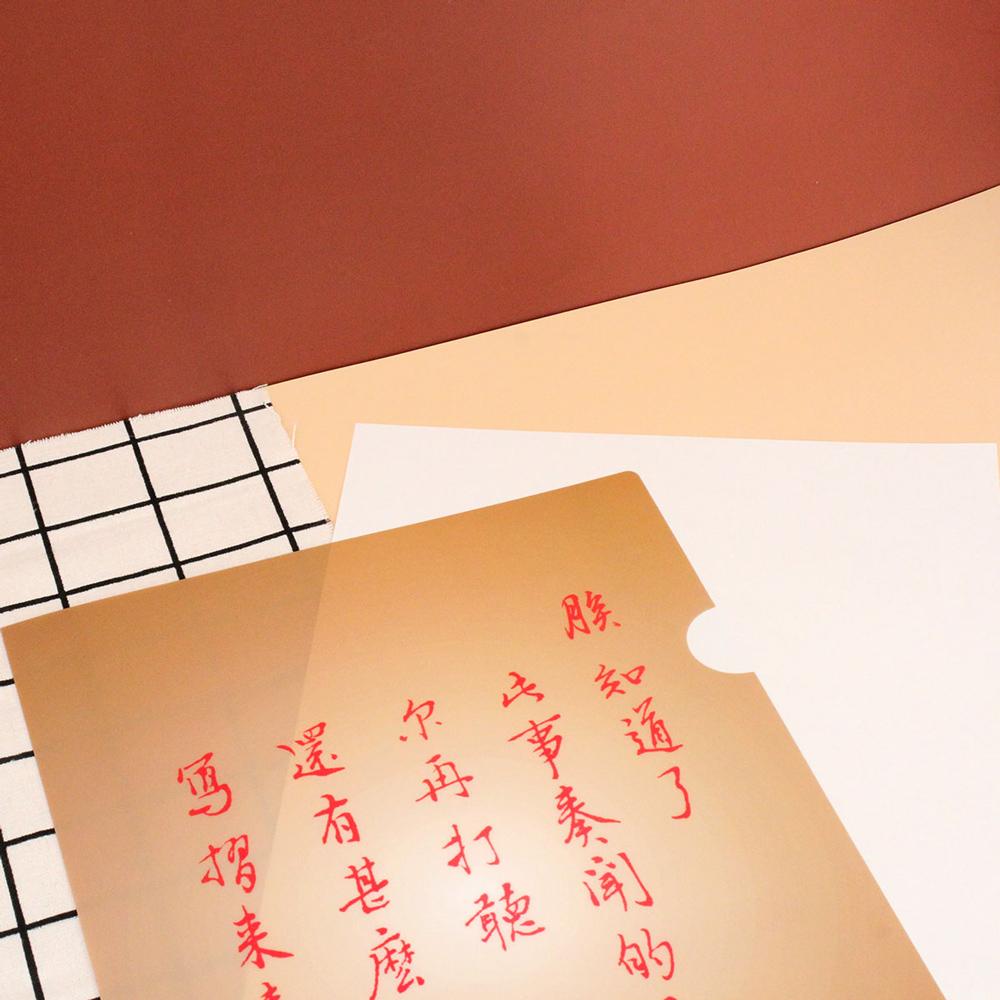 朕知道了
此事奏闻的
尔再打聽
還有甚麼
寫摺来